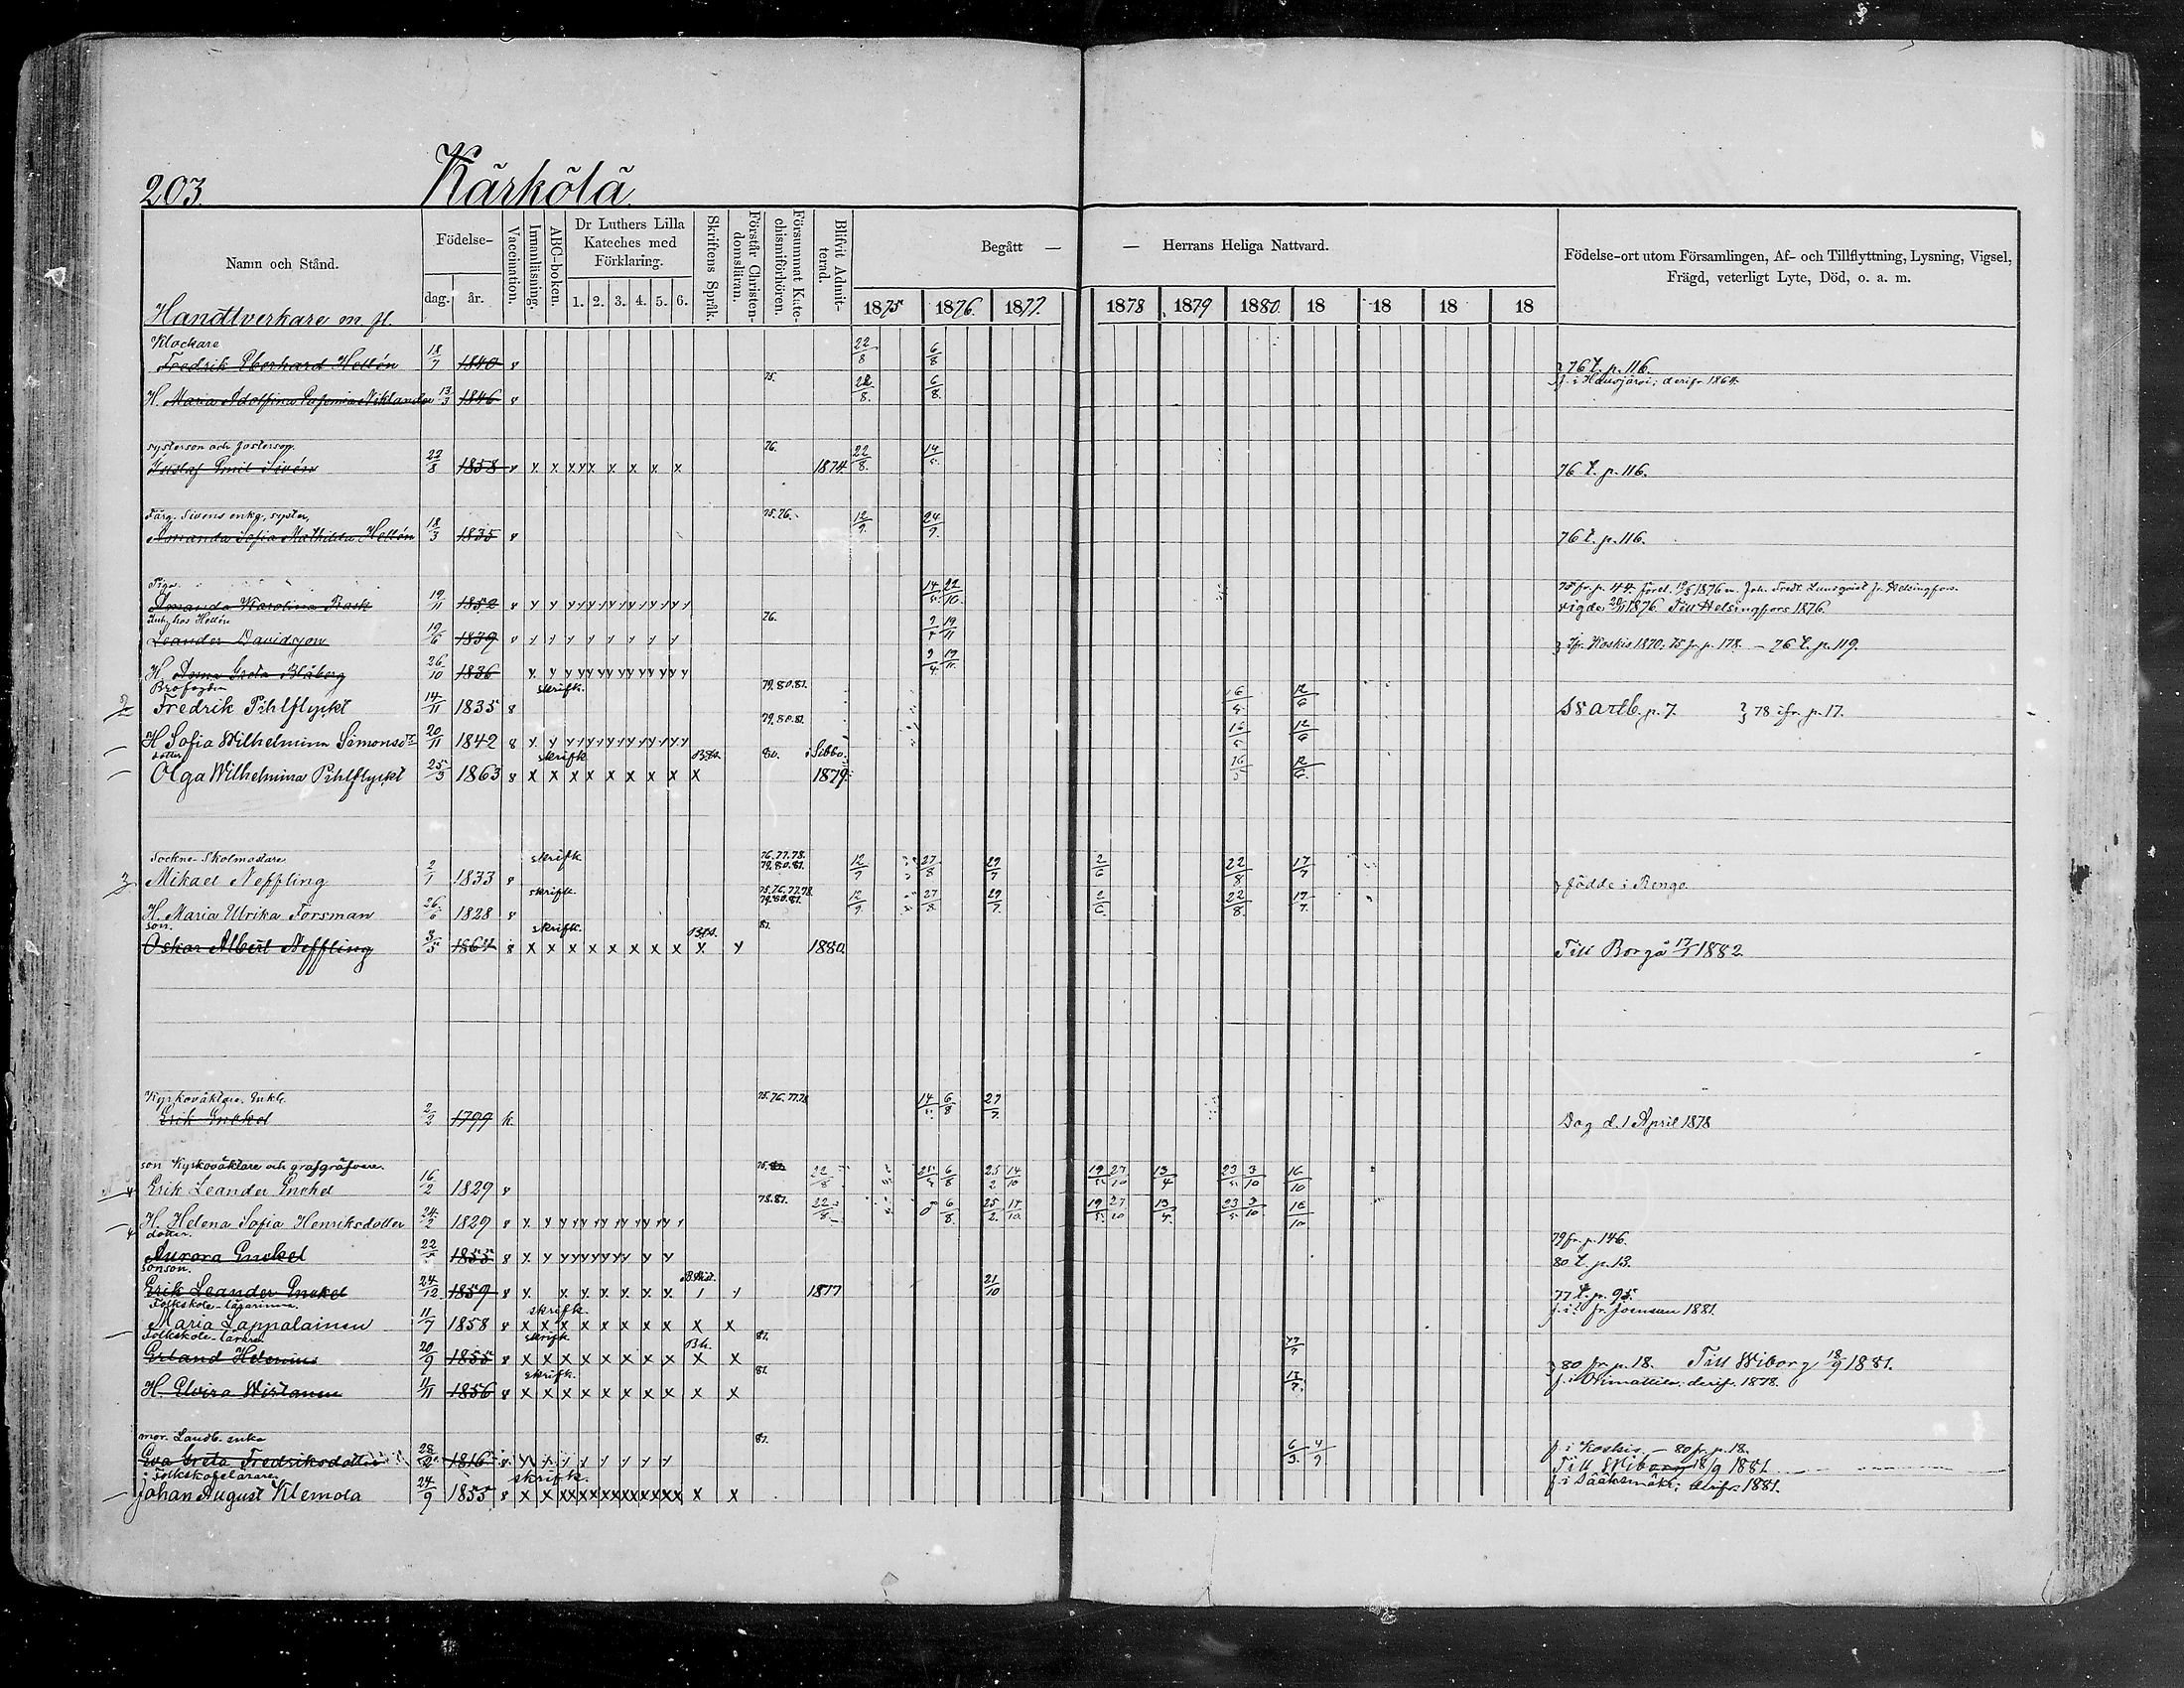 203. Kärkölä.
Namn och Stånd. Födelse- dag. år. Vaccination. Innanläsning. ABC-boken. Dr Luthers Lilla Kateches med Förklaring. 1. 2. 3. 4. 5. 6. Skriftens Språk. Förstår Christendomsläran. Försummat Katechismiförhören. Blifvit Admitterad. Begått — — Herrans Heliga Nattvard. Födelse-ort utom Församlingen, Af- och Tillflyttning, Lysning, Vigsel, Frägd, veterligt Lyte, Död, o. a. m.
1875 1876. 1877. 1878 1879 1880. 18 18 18 18
Handtverkare m fl.
Klockare
Fredrik Eberhard Hellén 18/7 1840 v 22/8 6/8 76 t. p. 116.
H. Maria Adolfina Niklander 13/3 1846 v 75. 22/8. 6/8. f. i Hausjärvi; derifr. 1864.
systerson och fosterson.
Gustaf Emil Sivén 22/8 1858 v x x x x x x x x x 76. 1874. 22/8. 14/5. 76 t. p. 116.
Färg. Sivens enkg., syster,
Amanda Sofia Mathilda Hellén 18/3 1835 v 75.76. 12/9. 24/9. 76 t. p. 116.
Piga.
Amanda Karolina Rask 19/11 1852 v 14/5. 22/10. 75 fr. p. 44.
vigde 1876. Till Helsingfors 1876.
hos Hellén
Leander Davidsson 19/6 1839 v 76. 9/4 19/11 ifr. Koskis 1870. 75 fr. p. 178. – 76 t. p. 119.
H. Anna Greta Blåberg 26/10 1836 9/4. 19/11.
Brofogden skrifk. 79.80.81.
2 Fredrik Pihlflyckt 14/11 1835 v 16/5. 12/6 p. 7. 78 ifr. p. 17.
79.80.81.
H Sofia Wilhelmina Simonsdr 20/11 1842 v 16/5. 12/6
dotter skrifk 80. i Sibbo.
Olga Wilhelmina Pihlflyckt 25/3 1863 v x x x x x x x x x 1879. 16/5 12/6.
Sockne-Skolmästare skrifk 76.77.78. 79.80.81.
3 Mikael Neffling 2/1 1833 v 12/9 27/8 29/7 2/6 22/8 17/7
skrifk. 75.76.77.78. 79.80.81. födde i Rengo.
H. Maria Ulrika Forsman 26/6 1828 v 12/9. 27/8. 29/7. 2/6. 22/8. 17/7.
son. skrifk. 81.
Oskar Albert Neffling 3/5 1864 v x x x x x x x x x 1880. Till Borgå 17/1 1882.
Kyrkoväktare. Enkl. 75.76.77.78
Erik Enckel 2/2 1799 k. 14/5. 6/8 29/7. Dog d. 1 April 1878
son Kyrkoväktare och grafgräfvare.
4 Erik Leander Enckel 16/2 1829 v 22/8 25/5 6/8 25/2 14/10 19/5. 27/10 13/4 23/5. 3/10 16/10
78.81.
H. Helena Sofia Henriksdotter 24/2 1829 v 22/8 6/8. 25/2. 14/10 19/5. 27/10 13/4. 23/5. 3/10. 16/10
dotter. 79 fr. p. 146.
Aurora Enckel 22/5 1855 v 80 t. p. 13.
sonson.
Erik Leander Enckel 24/12 1859 v 1877 21/10 77 t. p. 95.
Folkskole-lärarinna. skrifk. f. i fr. Joensuu 1881.
Maria Lappalainen 11/7 1858 v x x x x x x x x x x
Folkskole-lärare skrifk 81.
Erland Helenius 20/9 1855 v x x x x x x x x x x 17/7 80 fr. p. 18. Till Wiborg 18/9 1881.
skrifk. 81.
H. Elvira Wirtanen 11/11 1856 v x x x x x x x x x x 17/7. f. i Orimattila; derifr. 1878.
mor. Landb. enka 81.
Eva Greta Fredriksdotter 28/2 1816 v 6/3. 4/9 f. i Koskis. – 80 fr. p. 18. Till Wiborg 18/9 1881.
Folkskolelärare. skrifk.
Johan August Klemola 24/9 1855 v x x x x x x x x x x f. i Sääksmäki; derifr. 1881.